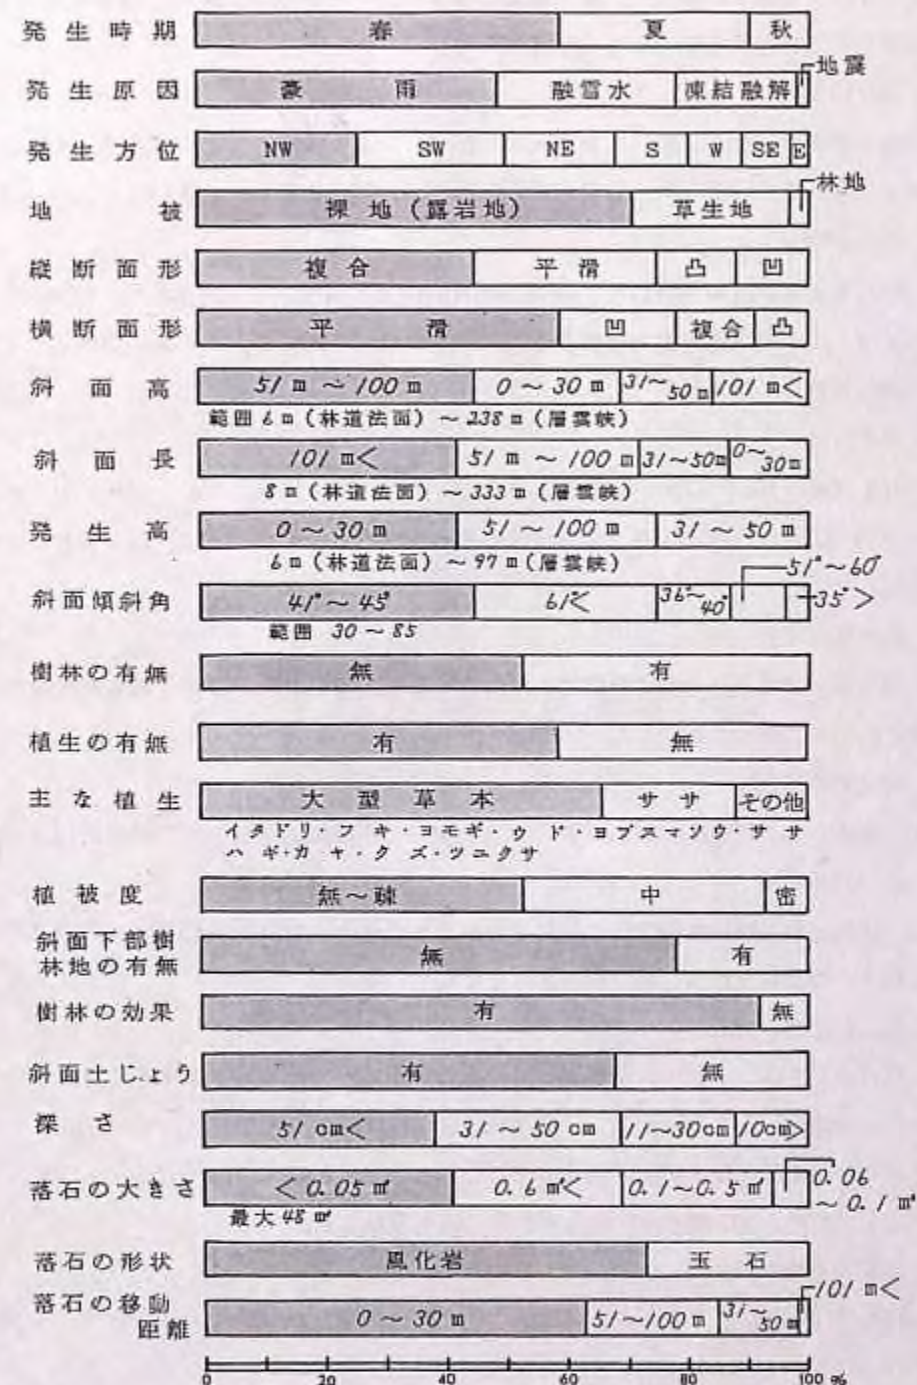 発生時期 春 夏 秋
発生原因 豪雨 融雪水 凍結融解 地震
発生方位 NW SW NE S W SE E
地被 裸地(露岩地) 草生地 林地
縦断面形 複合 平滑 凸 凹
横断面形 平滑 凹 複合 凸
斜面高 51m~100m 0~30m 31~50m 101m<
範囲6m(林道法面)~238m(層雲峡)
斜面長 101m< 51m~100m 31~50m 0~30m
8m(林道法面)~333m(層雲峡)
発生高 0~30m 51~100m 31~50m
6m(林道法面)~97m(層雲峡)
斜面傾斜角 41°~45° 61°< 36°~40° 51°~60° 35°>
範囲 30~85
樹林の有無 無 有
植生の有無 有 無
主な植生 大型草本 ササ その他
イタドリ・フキ・ヨモギ・ウド・ヨブスマソウ・ササ
ハギ・カヤ・クズ・ツユクサ
植被度 無~疎 中 密
斜面下部樹
林地の有無 無 有
樹林の効果 有 無
斜面土じょう 有 無
深さ 51cm< 31~50cm 11~30cm 10cm>
落石の大きさ <0.05㎥ 0.6㎥< 0.1~0.5㎥ 0.06~0.1㎥
最大48㎥
落石の形状 風化岩 玉石
落石の移動
距離 0~30m 51~100m 31~50m 101m<
0 20 40 60 80 100%